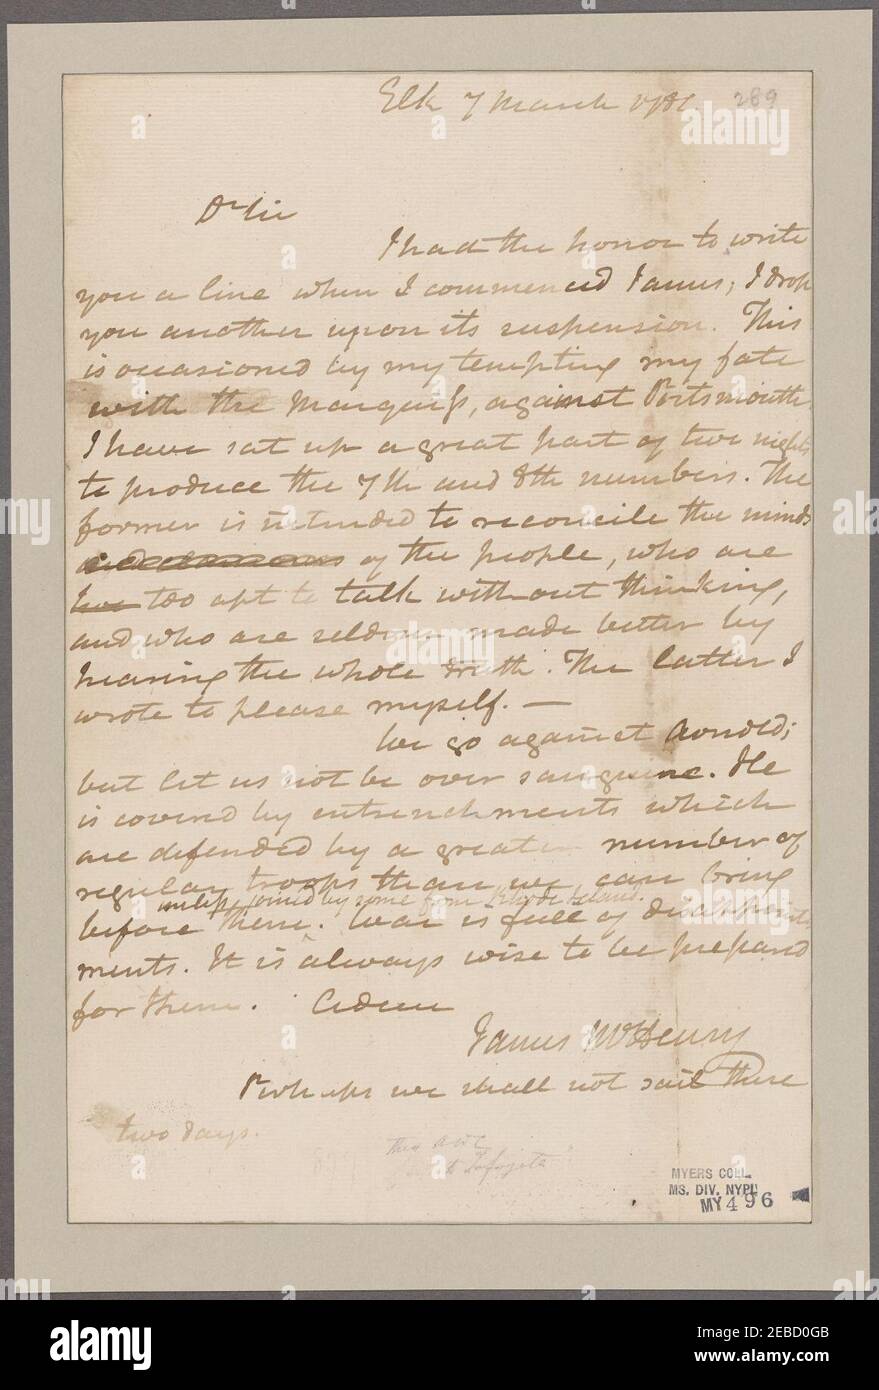 Elk 7 March 1781.
289
Dr Sir
I had the honor to write
you a line when I commenced Janus; I drop
you another upon its suspension. This
is occasioned by my tempting my fate
with the Marquiss, against Portsmouth.
I have sat up a great part of two nights
to produce the 7th and 8th numbers. The
former is intended to reconcile the minds
of the people, who are
too apt to talk without thinking,
and who are seldom made better by
hearing the whole truth. The latter I
wrote to please myself. —
We go against Arnold;
but let us not be over sanguine. He
is covered by entrenchments which
are defended by a greater number of
regular troops than we can bring
unless joined by some from Rhode Island.
before them. War is full of disappoint
ments. It is always wise to be prepared
for them. Adieu
James McHenry
Perhaps we shall not sail these
two days.
to Lafayette
MYERS COLL.
MS. DIV. NYPL
MY 496
alamy
Image ID: 2EBD0GB
www.alamy.com